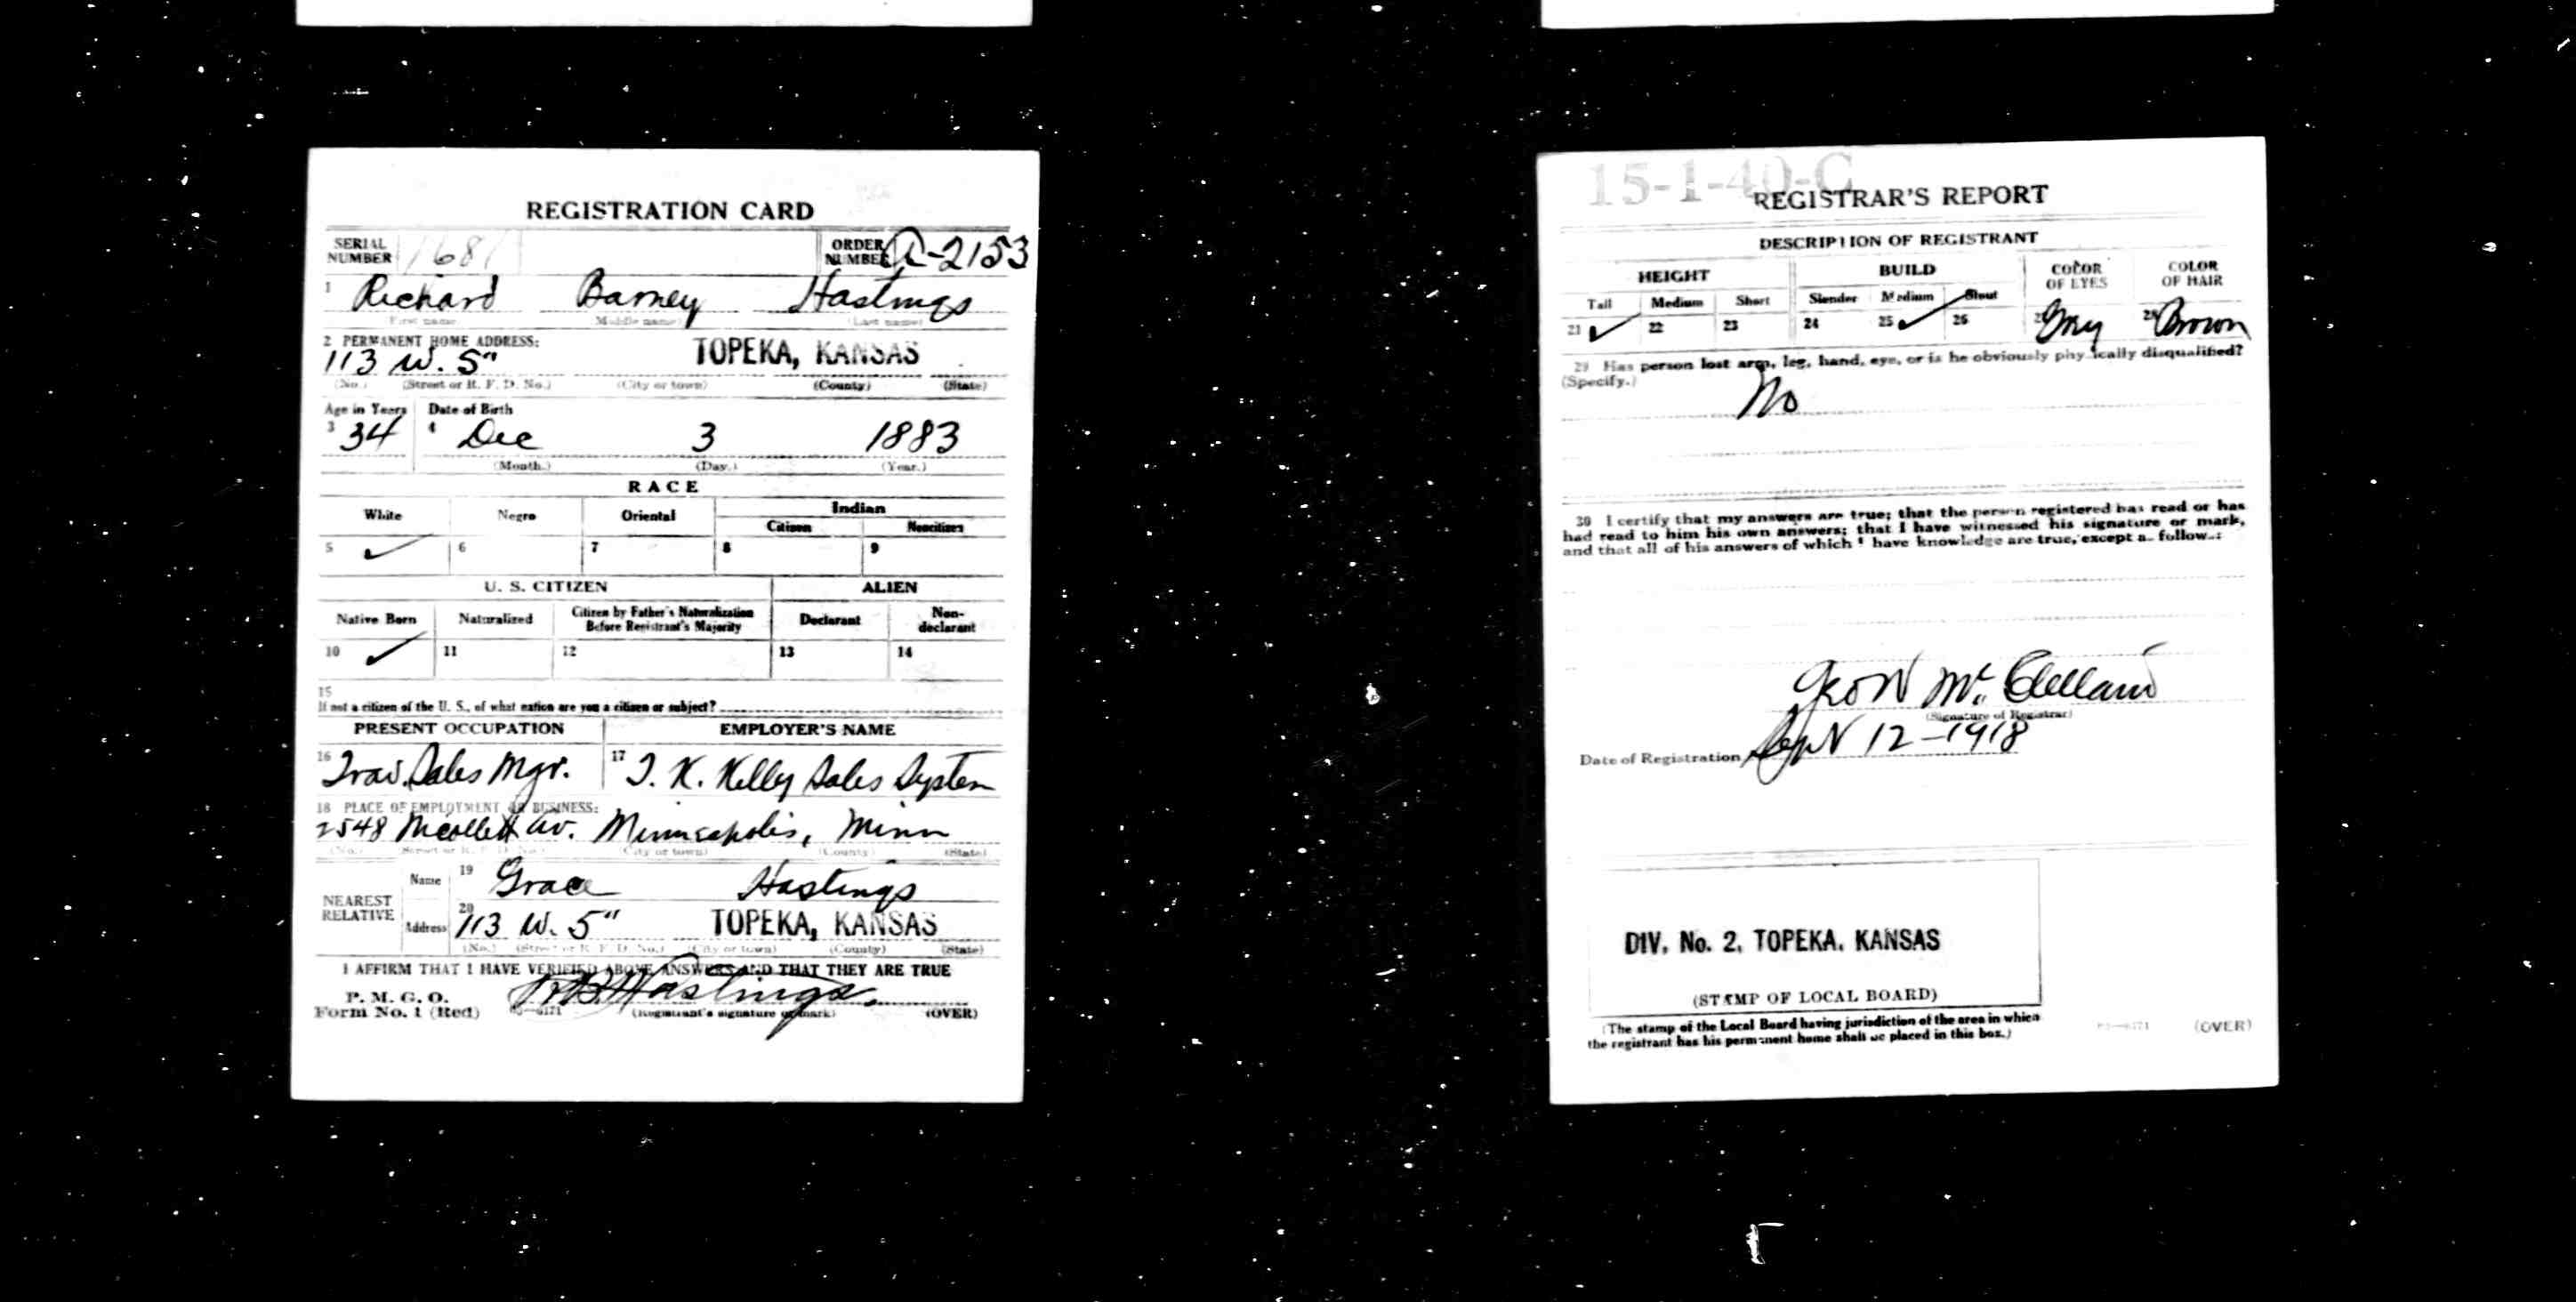 REGISTRATION CARD
SERIAL NUMBER 1681 ORDER NUMBER A-2153
1 Richard Barney Hastings
First name Middle name) (Last name)
2 PERMANENT HOME ADDRESS:
113 W. 5" TOPEKA, KANSAS
(No.) (Street or R. F. D. No.) (City or town) (County) (State)
Age in Years Date of Birth
3 34 4 Dec 3 1883
(Month.) (Day.) (Year.)
RACE
White Negro Oriental Indian
Citizen Noncitizen
5 ✓ 6 7 8 9
U. S. CITIZEN ALIEN
Native Born Naturalized Citizen by Father's Naturalization Before Registrant's Majority Declarant Non-declarant
10 ✓ 11 12 13 14
15
If not a citizen of the U. S., of what nation are you a citizen or subject?
PRESENT OCCUPATION EMPLOYER'S NAME
16 Trav. Sales Mgr. 17 T. K. Kelly Sales System
18 PLACE OF EMPLOYMENT OR BUSINESS:
2548 Nicollett Av. Minneapolis, Minn
(No.) Street or R. F. D. No.) (City or town) (County) (State)
NEAREST RELATIVE
Name 19 Grace Hastings
Address 20 113 W. 5" TOPEKA, KANSAS
(No.) (Street or R. F. D. No.) (City or town) (County) (State)
I AFFIRM THAT I HAVE VERIFIED ABOVE ANSWERS AND THAT THEY ARE TRUE
P. M. G. O.
Form No. 1 (Red) R B Hastings
(Registrant's signature or mark) (OVER)
15-1-40-C
REGISTRAR'S REPORT
DESCRIPTION OF REGISTRANT
HEIGHT BUILD COLOR OF EYES COLOR OF HAIR
Tall Medium Short Slender Medium Stout
21 ✓ 22 23 24 25 ✓ 26 Gray 28 Brown
29 Has person lost arm, leg, hand, eye, or is he obviously physically disqualified?
(Specify.)
No
30 I certify that my answers are true; that the person registered has read or has
had read to him his own answers; that I have witnessed his signature or mark,
and that all of his answers of which I have knowledge are true, except as follows:
Geo W McClelland
(Signature of Registrar)
Date of Registration Sept 12-1918
DIV. No. 2, TOPEKA, KANSAS
(STAMP OF LOCAL BOARD)
(The stamp of the Local Board having jurisdiction of the area in which
the registrant has his permanent home shall be placed in this box.)
(OVER)